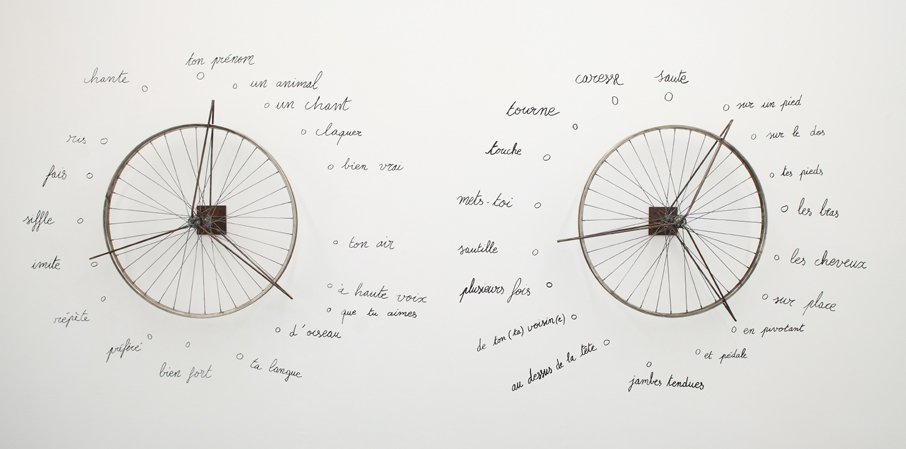 ton prénom
chante
un animal
un chant
claquer
ris
bien vrai
fais
siffle
ton air
imite
à haute voix
que tu aimes
répète
d'oiseau
préféré
bien fort
ta langue
caresse
saute
tourne
sur un pied
touche
sur le dos
tes pieds
mets-toi
les bras
sautille
les cheveux
plusieurs fois
sur place
de ton (ta) voisin(e)
en pivotant
au dessus de la tête
et pédale
jambes tendues